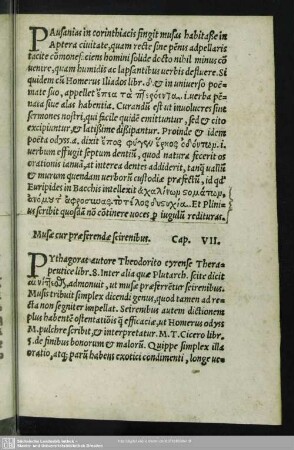 PAusanias in corinthiacis fingit musas habitaße in
Aptera civitate, quam recte sine pẽnis adpellaris
tacite cõmonefaciens homini solide docto nihil minus cõ
venire, quam humidis ac lapsantibus verbis defluere. Si
quidem cũ Homerus Iliados libr. & in universo poë=
mate suo, appellet ἔπεα τὰ πτερόεντα. i. verba pẽ=
nata sive alas habentia. Curandũ est ut involucres sint
sermones nostri, qui facile quidẽ emittuntur, sed & cito
excipiuntur, & latißime dißipantur. Proinde & idem
poëta odyss. α. dixit ἔπος φύγεν ἕρκος ὀδόντων. i.
verbum effugit septum dentiũ, quod natura fecerit os
orationis ianuã, at interea dentes addiderit, tanq̃ vallũ
& murum quendam verborũ custodiæ præfectũ, id qđ
Euripides in Bacchis intellexit ἀχαλίνων στομάτων,
ἀνόμου τ' ἀφροσύνας τὸ τέλος δυστυχία. Et Plini=
us scribit quosdã nõ cõtinere voces p̱ iugulũ redituras.
Musæ cur præferendæ scirenibus. Cap. VII.
PYthagoras autore Theodorito cyrense Thera=
peutice libr. 8. Inter alia quæ Plutarch. scite dicit
admonuit, ut musæ præferrẽtur scirenibus.
Musis tribuit simplex dicendi genus, quod tamen ad re=
cta non segniter impellat. Scirenibus autem dictionem
plus habentẽ ostentatiõis q̃ efficaciæ, ut Homerus odys
M. pulchre scribit, & interpretatur. M. T. Cicero libr.
5. de finibus bonorum & malorũ. Quippe simplex illa
oratio, atq; parũ habens exotici condimenti, longe ut=